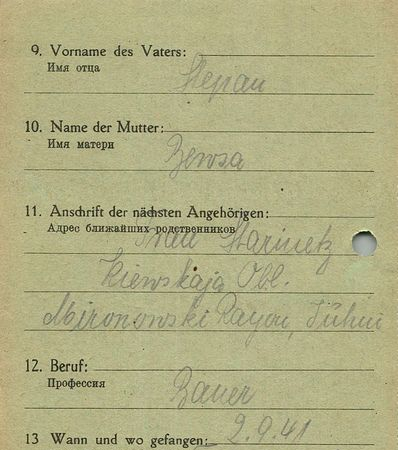 9. Vorname des Vaters:
Имя отца
Stepan
10. Name der Mutter:
Имя матери
11. Anschrift der nächsten Angehörigen:
Адрес ближайших родственников
Starinetz
Kiewskaja Obl.
Mironowski Rayon,
12. Beruf:
Профессия
Bauer
13 Wann und wo gefangen: 2.9.41